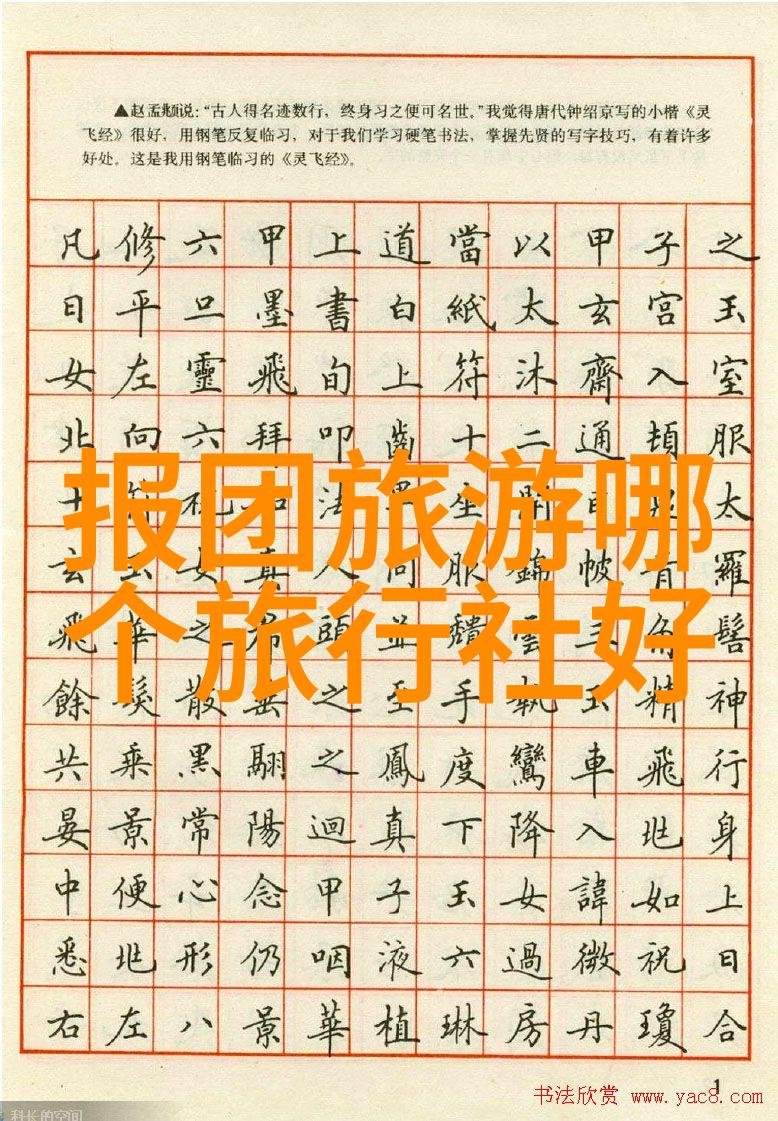 ▲赵孟頫说：“古人得名迹数行，终身习之便可名世。”我觉得唐代钟绍京写的小楷《灵
飞经》很好，用钢笔反复临习，对于我们学习硬笔书法，掌握先贤的写字技巧，有着许多
好处。这是我用钢笔临习的《灵飞经》。
凡修六甲上道當以甲子之
日平旦墨書白紙太玄宮玉
女左靈飛旬上符沐齋入室
北向六拜叩齒十二通頓服
十法坐太
报团旅游哪
玄玉女真人同服錦帔青羅
飛華之頭並雲三角髻
个旅行社好
餘髮散垂之至手執玉精神
共乘黑翮之鳳度鸞車飛行
晏景常陽迴真下降入兆身
中便心念甲子玉女諱如上
悉兆形仍咽液六過微祝日
右左八景華植琳房丹瓊合
1
书法欣赏 www.yac8.com
科长的空间